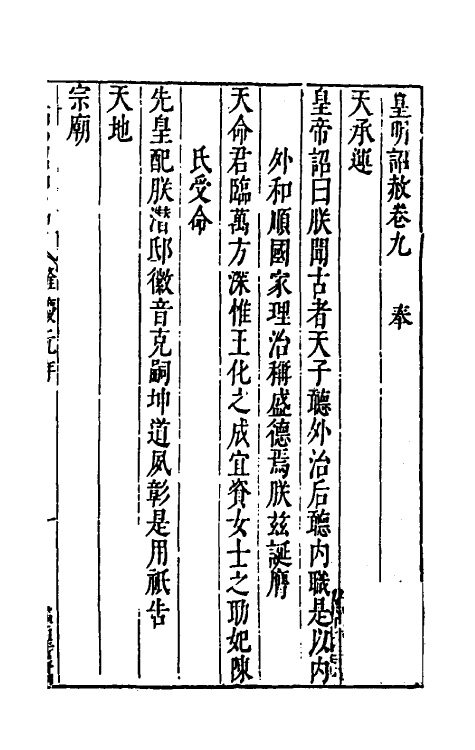 皇明詔赦卷九　　奉
天承運
皇帝詔曰朕聞古者天子聽外治后聽內職是以內
外和順國家理治稱盛德焉朕茲誕膺
天命君臨萬方深惟王化之成宜資女士之助妃陳
氏受命
先皇配朕潛邸徽音克嗣坤道夙彰是用祇告
天地
宗廟
隆慶元年
一